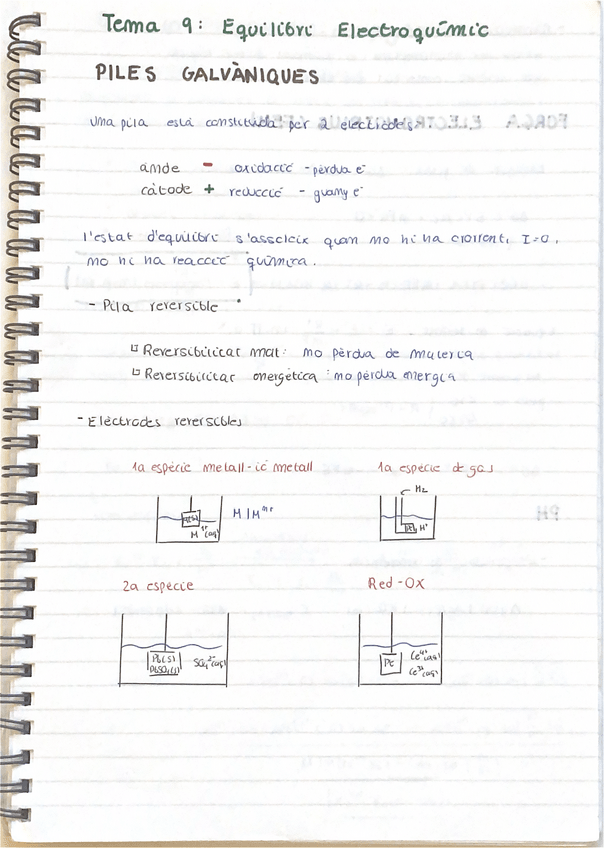 Tema 9: Equilibri Electroquímic
PILES GALVÀNIQUES
Una pila està constituïda per 2 elèctrodes:
ànode - oxidació - pèrdua e⁻
càtode + reducció - guany e⁻
l'estat d'equilibri s'assoleix quan no hi ha corrent, I=0,
no hi ha reacció química.
- Pila reversible
Reversibilitat mat: no pèrdua de matèria
Reversibilitat energètica: no pèrdua energia
- Elèctrodes reversibles
1a espècie metall-ió metall 1a espècie de gas
M(s) M|Mⁿ⁺ H₂
Mⁿ⁺(aq) Pt H⁺
2a espècie Red-Ox
Pb(s) SO₄²⁻(aq) Pt Ce⁴⁺(aq)
PbSO₄(s) Ce³⁺(aq)